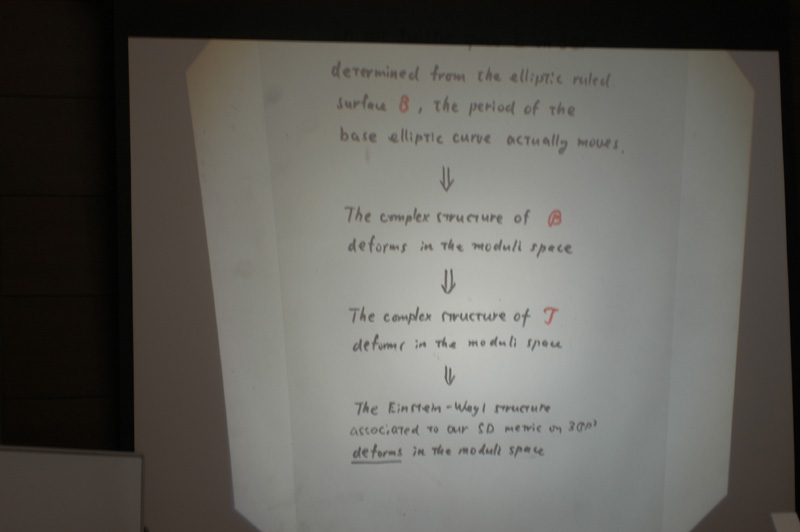 determined from the elliptic ruled
surface B, the period of the
base elliptic curve actually moves.
⇓
The complex structure of B
deforms in the moduli space
⇓
The complex structure of T
deforms in the moduli space
⇓
The Einstein-Weyl structure
associated to our SD metric on 3CP²
deforms in the moduli space